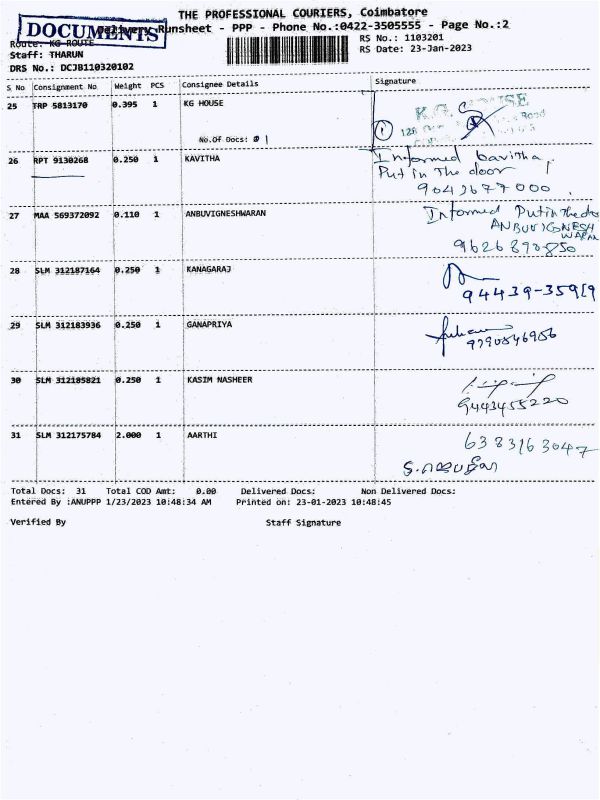 THE PROFESSIONAL COURIERS, Coimbatore
DOCUMENTS
Delivery Runsheet - PPP - Phone No.:0422-3505555 - Page No.:2
Route: KG ROUTE
RS No.: 1103201
Staff: THARUN
RS Date: 23-Jan-2023
DRS No.: DCJB110320102
S No Consignment No Weight PCS Consignee Details Signature
25 TRP 5813170 0.395 1 KG HOUSE
K.G. HOUSE
1
Road
No.Of Docs: 1
26 RPT 9130268 0.250 1 KAVITHA
Informed kavitha,
Put in The door
9042677000
27 MAA 569372092 0.110 1 ANBUVIGNESHWARAN
Informed Put in The
ANBUVIGNESH
WARAN
9626890850
28 SLM 312187164 0.250 1 KANAGARAJ
94439-35919
29 SLM 312183936 0.250 1 GANAPRIYA
9790546956
30 SLM 312185821 0.250 1 KASIM NASHEER
9443455220
31 SLM 312175784 2.000 1 AARTHI
6383163047
Total Docs: 31 Total COD Amt: 0.00 Delivered Docs: Non Delivered Docs:
Entered By :ANUPPP 1/23/2023 10:48:34 AM Printed on: 23-01-2023 10:48:45
Verified By Staff Signature